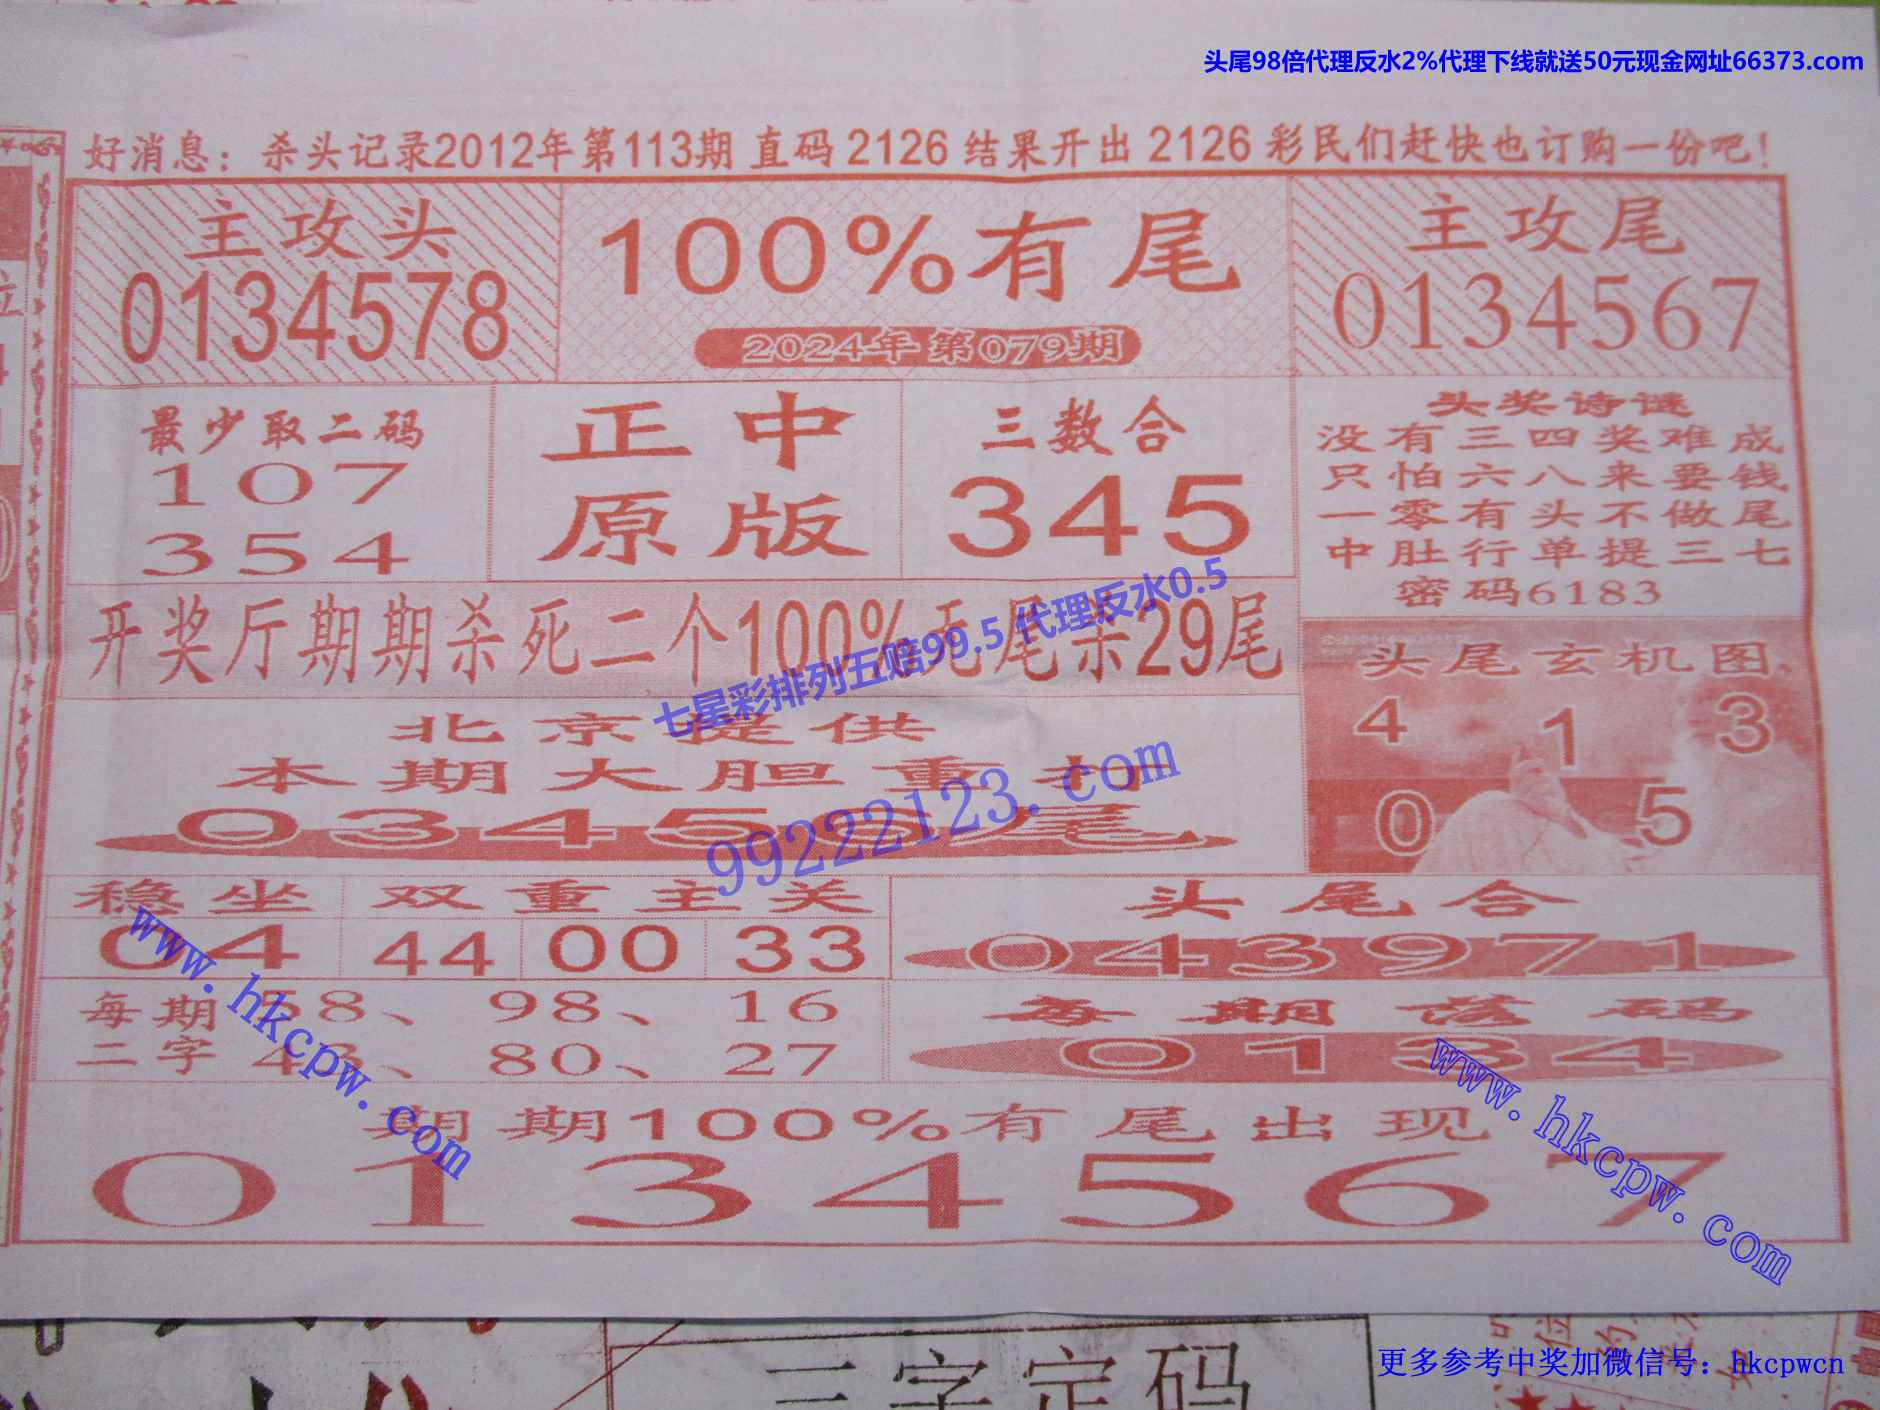 头尾98倍代理反水2%代理下线就送50元现金网址66373.com
好消息：杀头记录2012年第113期 直码 2126 结果开出 2126 彩民们赶快也订购一份吧！
主攻头
0134578
100%有尾
2024年 第079期
主攻尾
0134567
最少取二码
107
354
正中
原版
三数合
345
头奖诗谜
没有三四奖难成
只怕六八来要钱
一零有头不做尾
中肚行单提三七
密码6183
开奖厅期期杀死二个100%无尾杀29尾
七星彩排列五赔99.5 代理反水0.5
头尾玄机图
4 1 3
0 5
北京提供
本期大胆重
0345 尾
99222123.com
稳坐
04
双重主关
44 00 33
头尾合
043971
www.hkcpw.com
每期 58、 98、 16
二字 43、 80、 27
每期落码
0134
www.hkcpw.com
期期100%有尾出现
0134567
三字定码
更多参考中奖加微信号：hkcpwcn